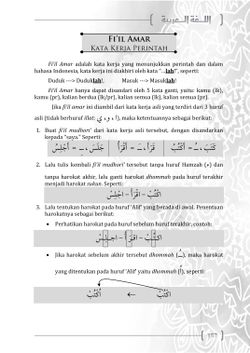 اللغة العربية
Fi'il Amar
Kata Kerja Perintah
Fi'il Amar adalah kata kerja yang menunjukkan perintah dan dalam
bahasa Indonesia, kata kerja ini diakhiri oleh kata "…lah!", seperti:
Duduk ---> Duduklah!, Masuk ---> Masuklah!
Fi'il Amar hanya dapat disandari oleh 5 kata ganti, yaitu: kamu (lk),
kamu (pr), kalian berdua (lk/pr), kalian semua (lk), kalian semua (pr).
Jika fi'il amar ini diambil dari kata kerja asli yang terdiri dari 3 huruf
asli (tidak berhuruf illat: ا، و، ي), maka ketentuannya sebagai berikut:
1. Buat fi'il mudhori' dari kata kerja asli tersebut, dengan disandarkan
kepada "saya." Seperti:
كَتَبَ ـُـ – أَكْتُبُ قَرَأَ ـَـ – أَقْرَأُ جَلَسَ ـِـ – أَجْلِسُ
2. Lalu tulis kembali fi'il mudhori' tersebut tanpa huruf Hamzah (ء) dan
tanpa harokat akhir, lalu ganti harokat dhommah pada huruf terakhir
menjadi harokat sukun. Seperti:
اكْتُبْ – اقْرَأْ – اجْلِسْ
3. Lalu tentukan harokat pada huruf 'Alif' yang berada di awal. Penentuan
harokatnya sebagai berikut:
• Perhatikan harokat pada huruf sebelum huruf terakhir, contoh:
اكْتُبْ – اقْرَأْ – اجْلِسْ
• Jika harokat sebelum akhir tersebut dhommah (ـُـ), maka harokat
yang ditentukan pada huruf 'Alif' yaitu dhommah (اُ), seperti:
اكْتُبْ ← اُكْتُبْ